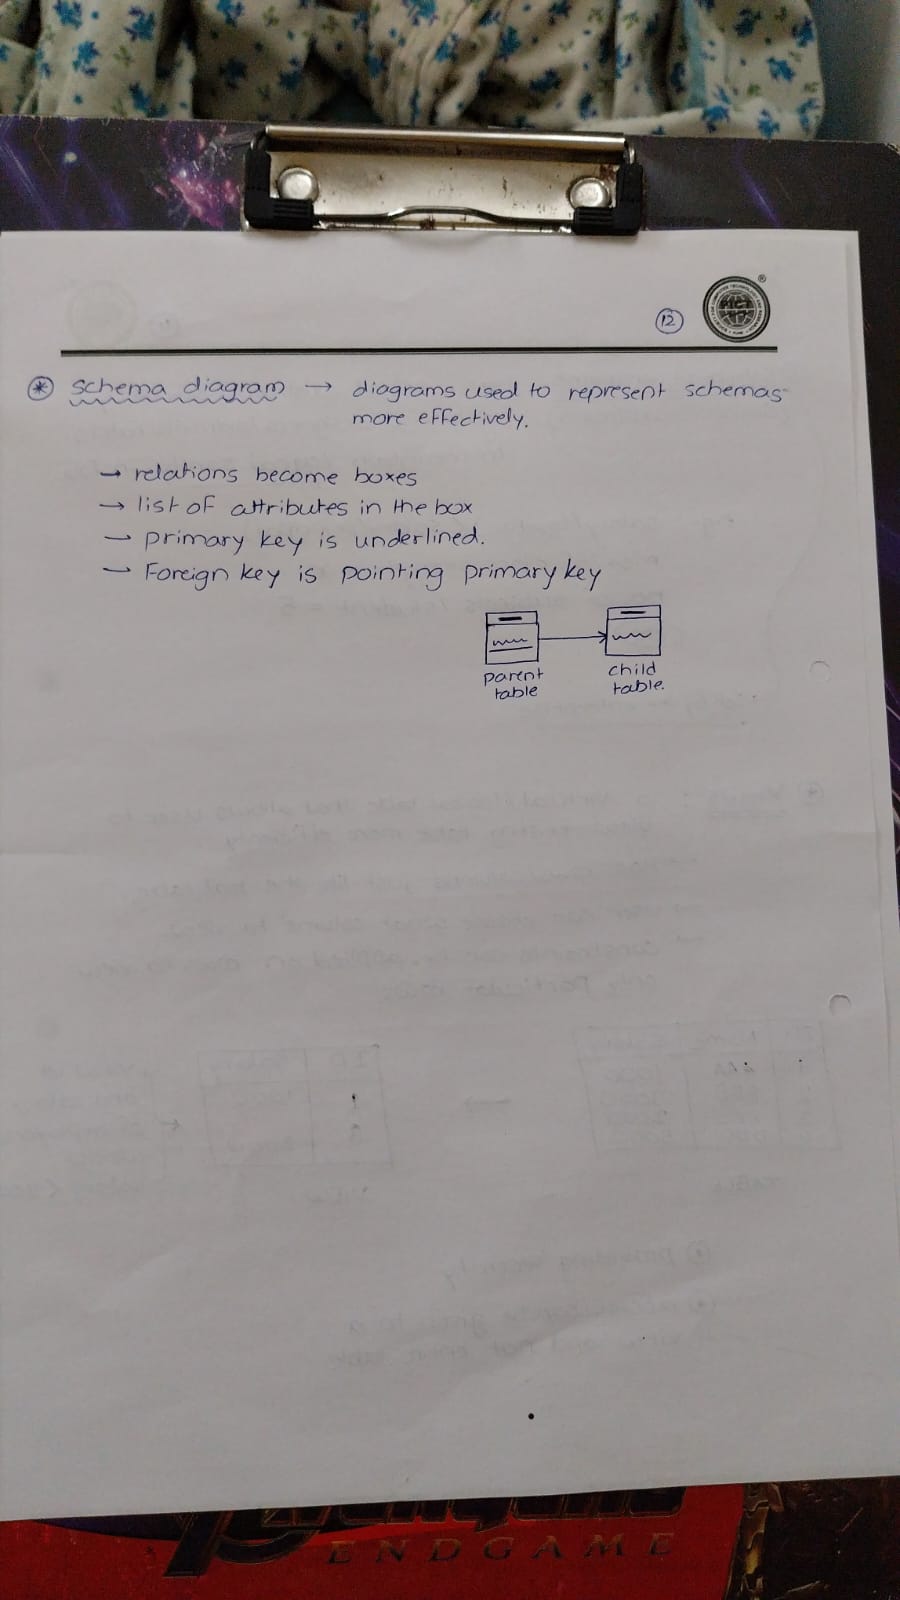 12
schema diagram → diagrams used to represent schemas
more effectively.
→ relations become boxes
→ list of attributes in the box
→ primary key is underlined.
→ Foreign key is pointing primary key
parent
table
child
table.
ENDGAME